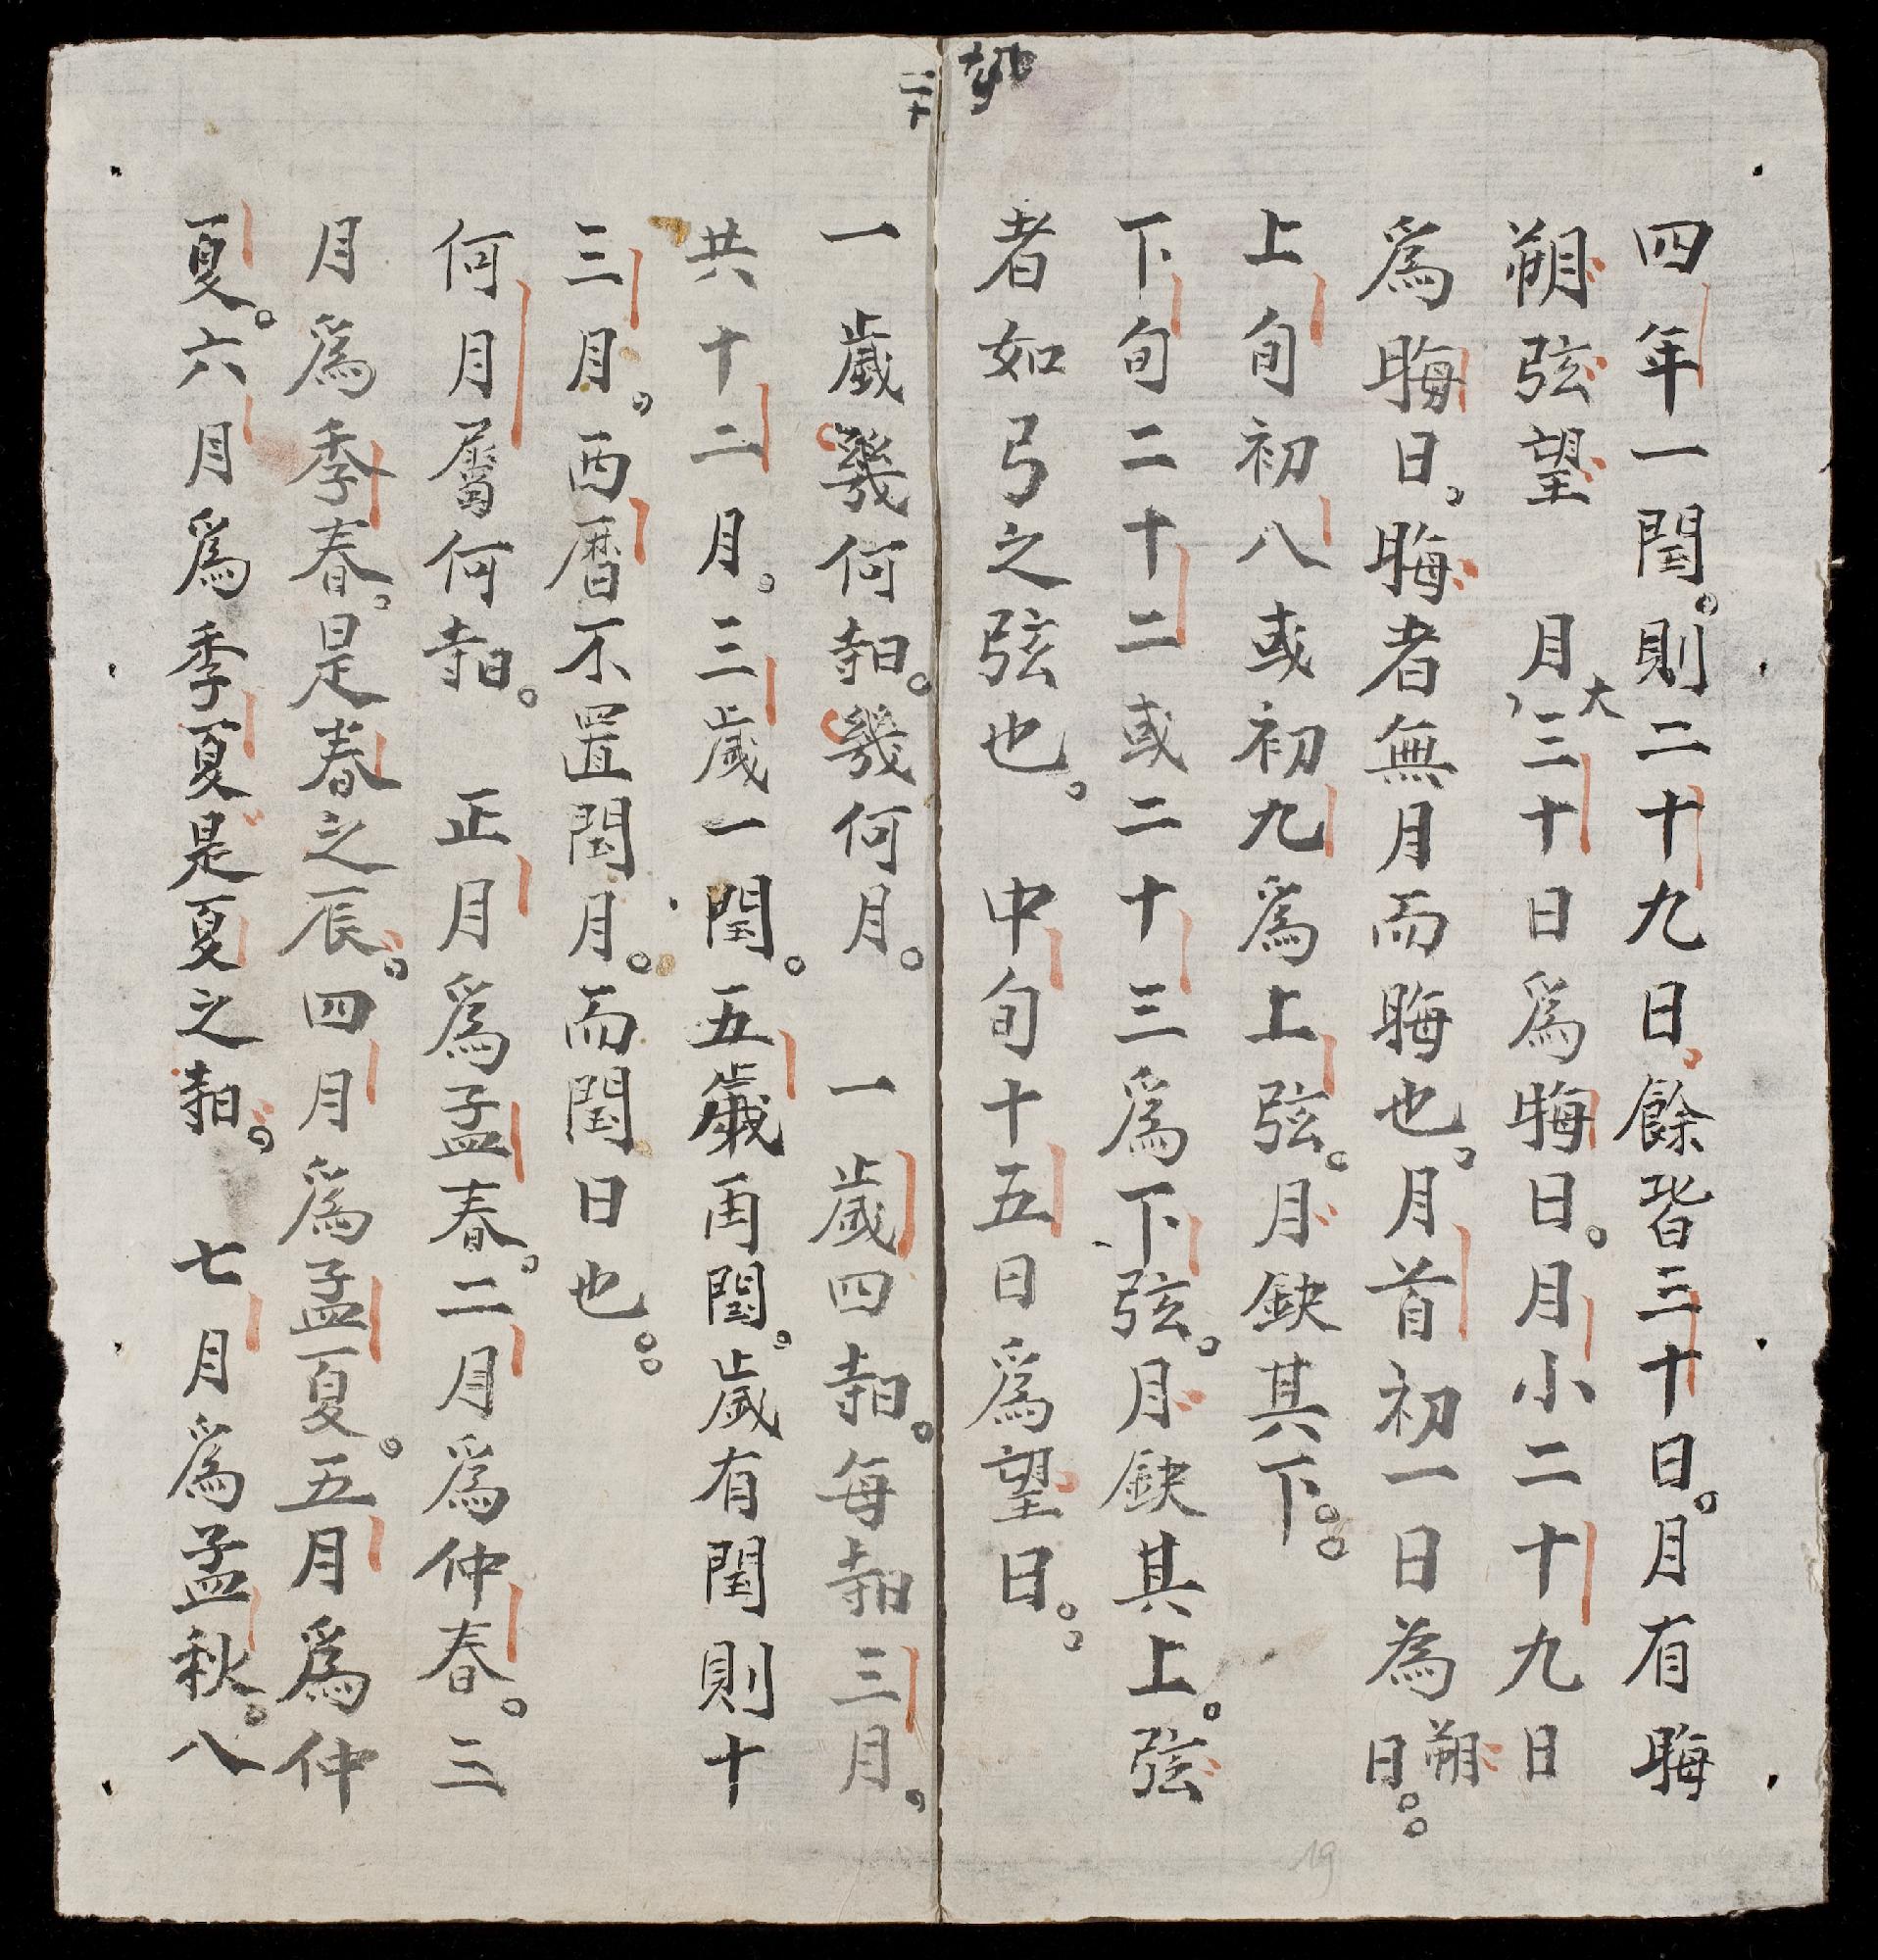 四年一閏。則二十九日。餘皆三十日。月有晦
朔弦望 月大三十日爲晦日。月小二十九日
爲晦日。晦者無月而晦也。月首初一日為朔日。。
上旬初八或初九爲上弦。月缺其下。。
下旬二十二或二十三爲下弦。月缺其上。弦
者如弓之弦也。 中旬十五日爲望日。。
二十
一歲幾何時。幾何月。 一歲四時。每時三月。
共十二月。三歲一閏。五歲再閏。歲有閏則十
三月。西暦不置閏月。而閏日也。。
何月屬何時。 正月爲孟春。二月爲仲春。三
月爲季春。是春之辰。四月爲孟夏。五月爲仲
夏。六月爲季夏是夏之時。 七月爲孟秋。八
19